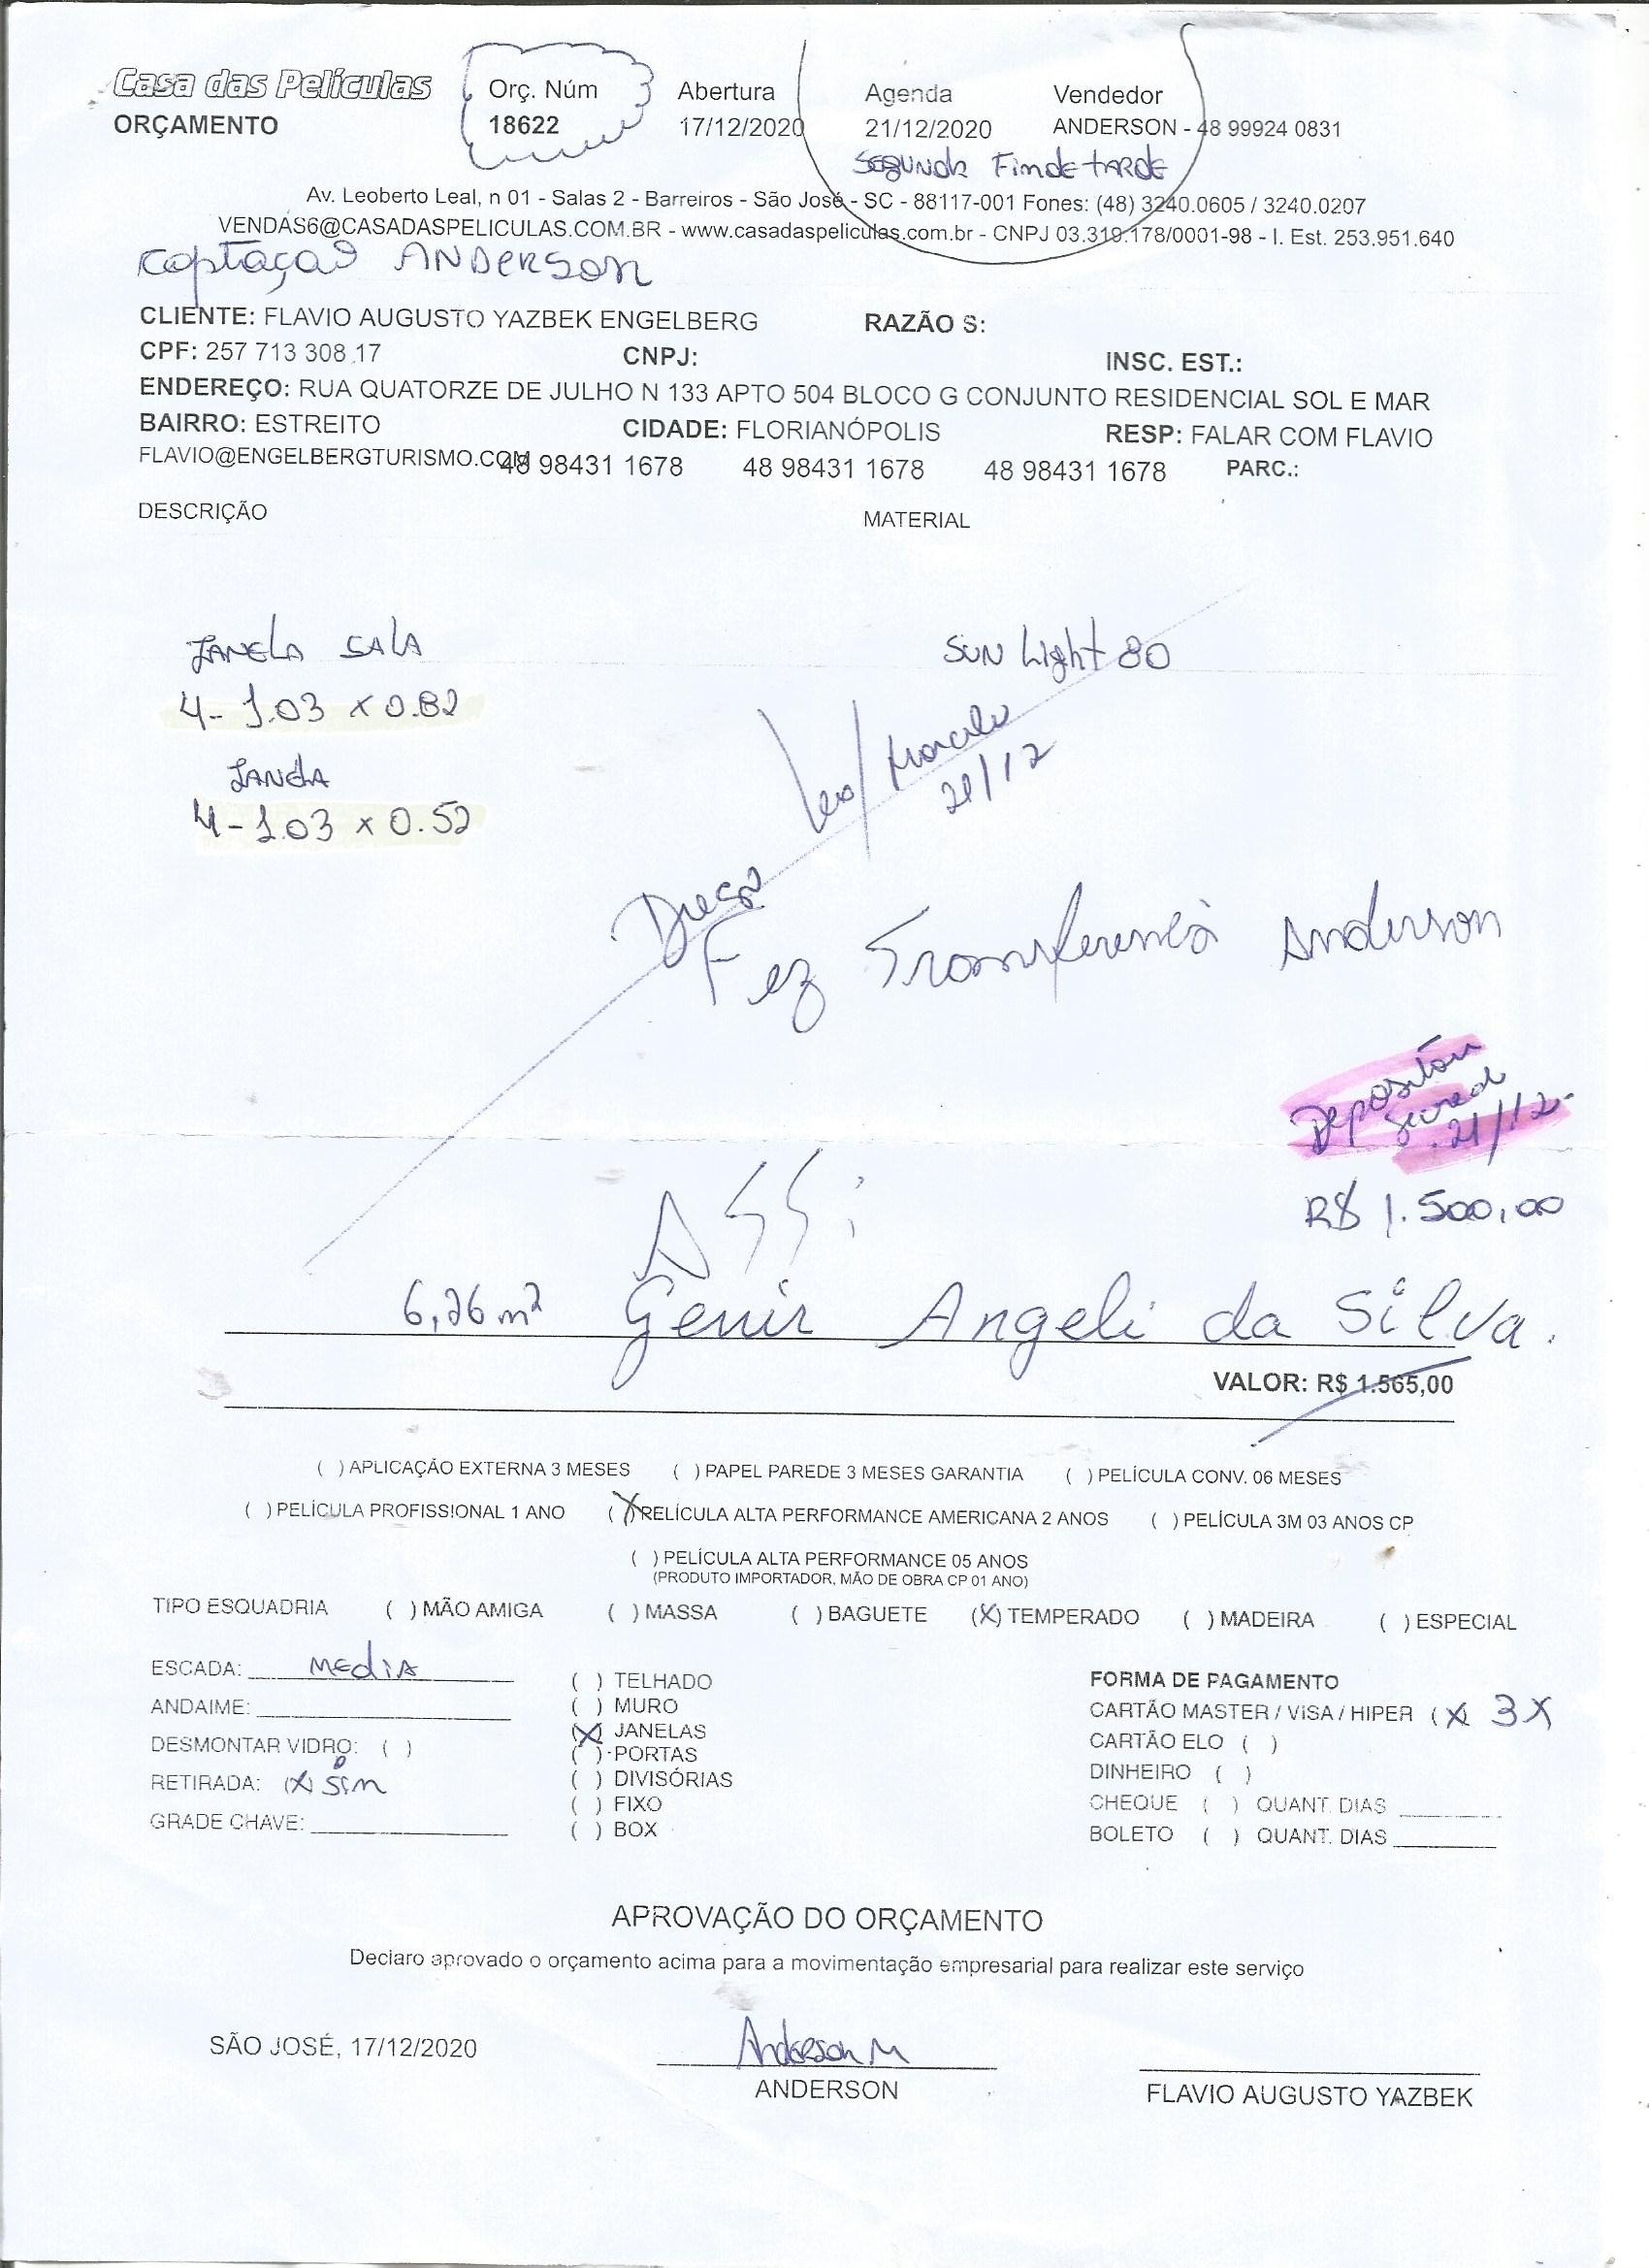 Casa das Películas
ORÇAMENTO
Orç. Núm
18622
Abertura
17/12/2020
Agenda
21/12/2020
Vendedor
ANDERSON - 48 99924 0831
SEGUNDA Fim de tARDE
Av. Leoberto Leal, n 01 - Salas 2 - Barreiros - São José - SC - 88117-001 Fones: (48) 3240.0605 / 3240.0207
VENDAS6@CASADASPELICULAS.COM.BR - www.casadaspeliculas.com.br - CNPJ 03.319.178/0001-98 - I. Est. 253.951.640
captação ANDERSON
CLIENTE: FLAVIO AUGUSTO YAZBEK ENGELBERG RAZÃO S:
CPF: 257 713 308 17 CNPJ: INSC. EST.:
ENDEREÇO: RUA QUATORZE DE JULHO N 133 APTO 504 BLOCO G CONJUNTO RESIDENCIAL SOL E MAR
BAIRRO: ESTREITO CIDADE: FLORIANÓPOLIS RESP: FALAR COM FLAVIO
FLAVIO@ENGELBERGTURISMO.COM 48 98431 1678 48 98431 1678 48 98431 1678 PARC.:
DESCRIÇÃO MATERIAL
JANELA SALA SUN Light 80
4- 1.03 x 0.82
JANELA
4- 1.03 x 0.52
Leo/Marcelo
21/12
Diego
Fez Transferencia Anderson
Depositou
21/12
R$ 1.500,00
ASS:
6,26 m² Genir Angeli da Silva.
VALOR: R$ 1.565,00
( ) APLICAÇÃO EXTERNA 3 MESES ( ) PAPEL PAREDE 3 MESES GARANTIA ( ) PELÍCULA CONV. 06 MESES
( ) PELÍCULA PROFISSIONAL 1 ANO (X) PELÍCULA ALTA PERFORMANCE AMERICANA 2 ANOS ( ) PELÍCULA 3M 03 ANOS CP
( ) PELÍCULA ALTA PERFORMANCE 05 ANOS
(PRODUTO IMPORTADOR, MÃO DE OBRA CP 01 ANO)
TIPO ESQUADRIA ( ) MÃO AMIGA ( ) MASSA ( ) BAGUETE (X) TEMPERADO ( ) MADEIRA ( ) ESPECIAL
ESCADA: MEdiA
ANDAIME:
DESMONTAR VIDRO: ( )
RETIRADA: (X) Sim
GRADE CHAVE:
( ) TELHADO
( ) MURO
(X) JANELAS
( ) PORTAS
( ) DIVISÓRIAS
( ) FIXO
( ) BOX
FORMA DE PAGAMENTO
CARTÃO MASTER / VISA / HIPER (X) 3X
CARTÃO ELO ( )
DINHEIRO ( )
CHEQUE ( ) QUANT. DIAS
BOLETO ( ) QUANT. DIAS
APROVAÇÃO DO ORÇAMENTO
Declaro aprovado o orçamento acima para a movimentação empresarial para realizar este serviço
SÃO JOSÉ, 17/12/2020
Anderson M
ANDERSON
FLAVIO AUGUSTO YAZBEK